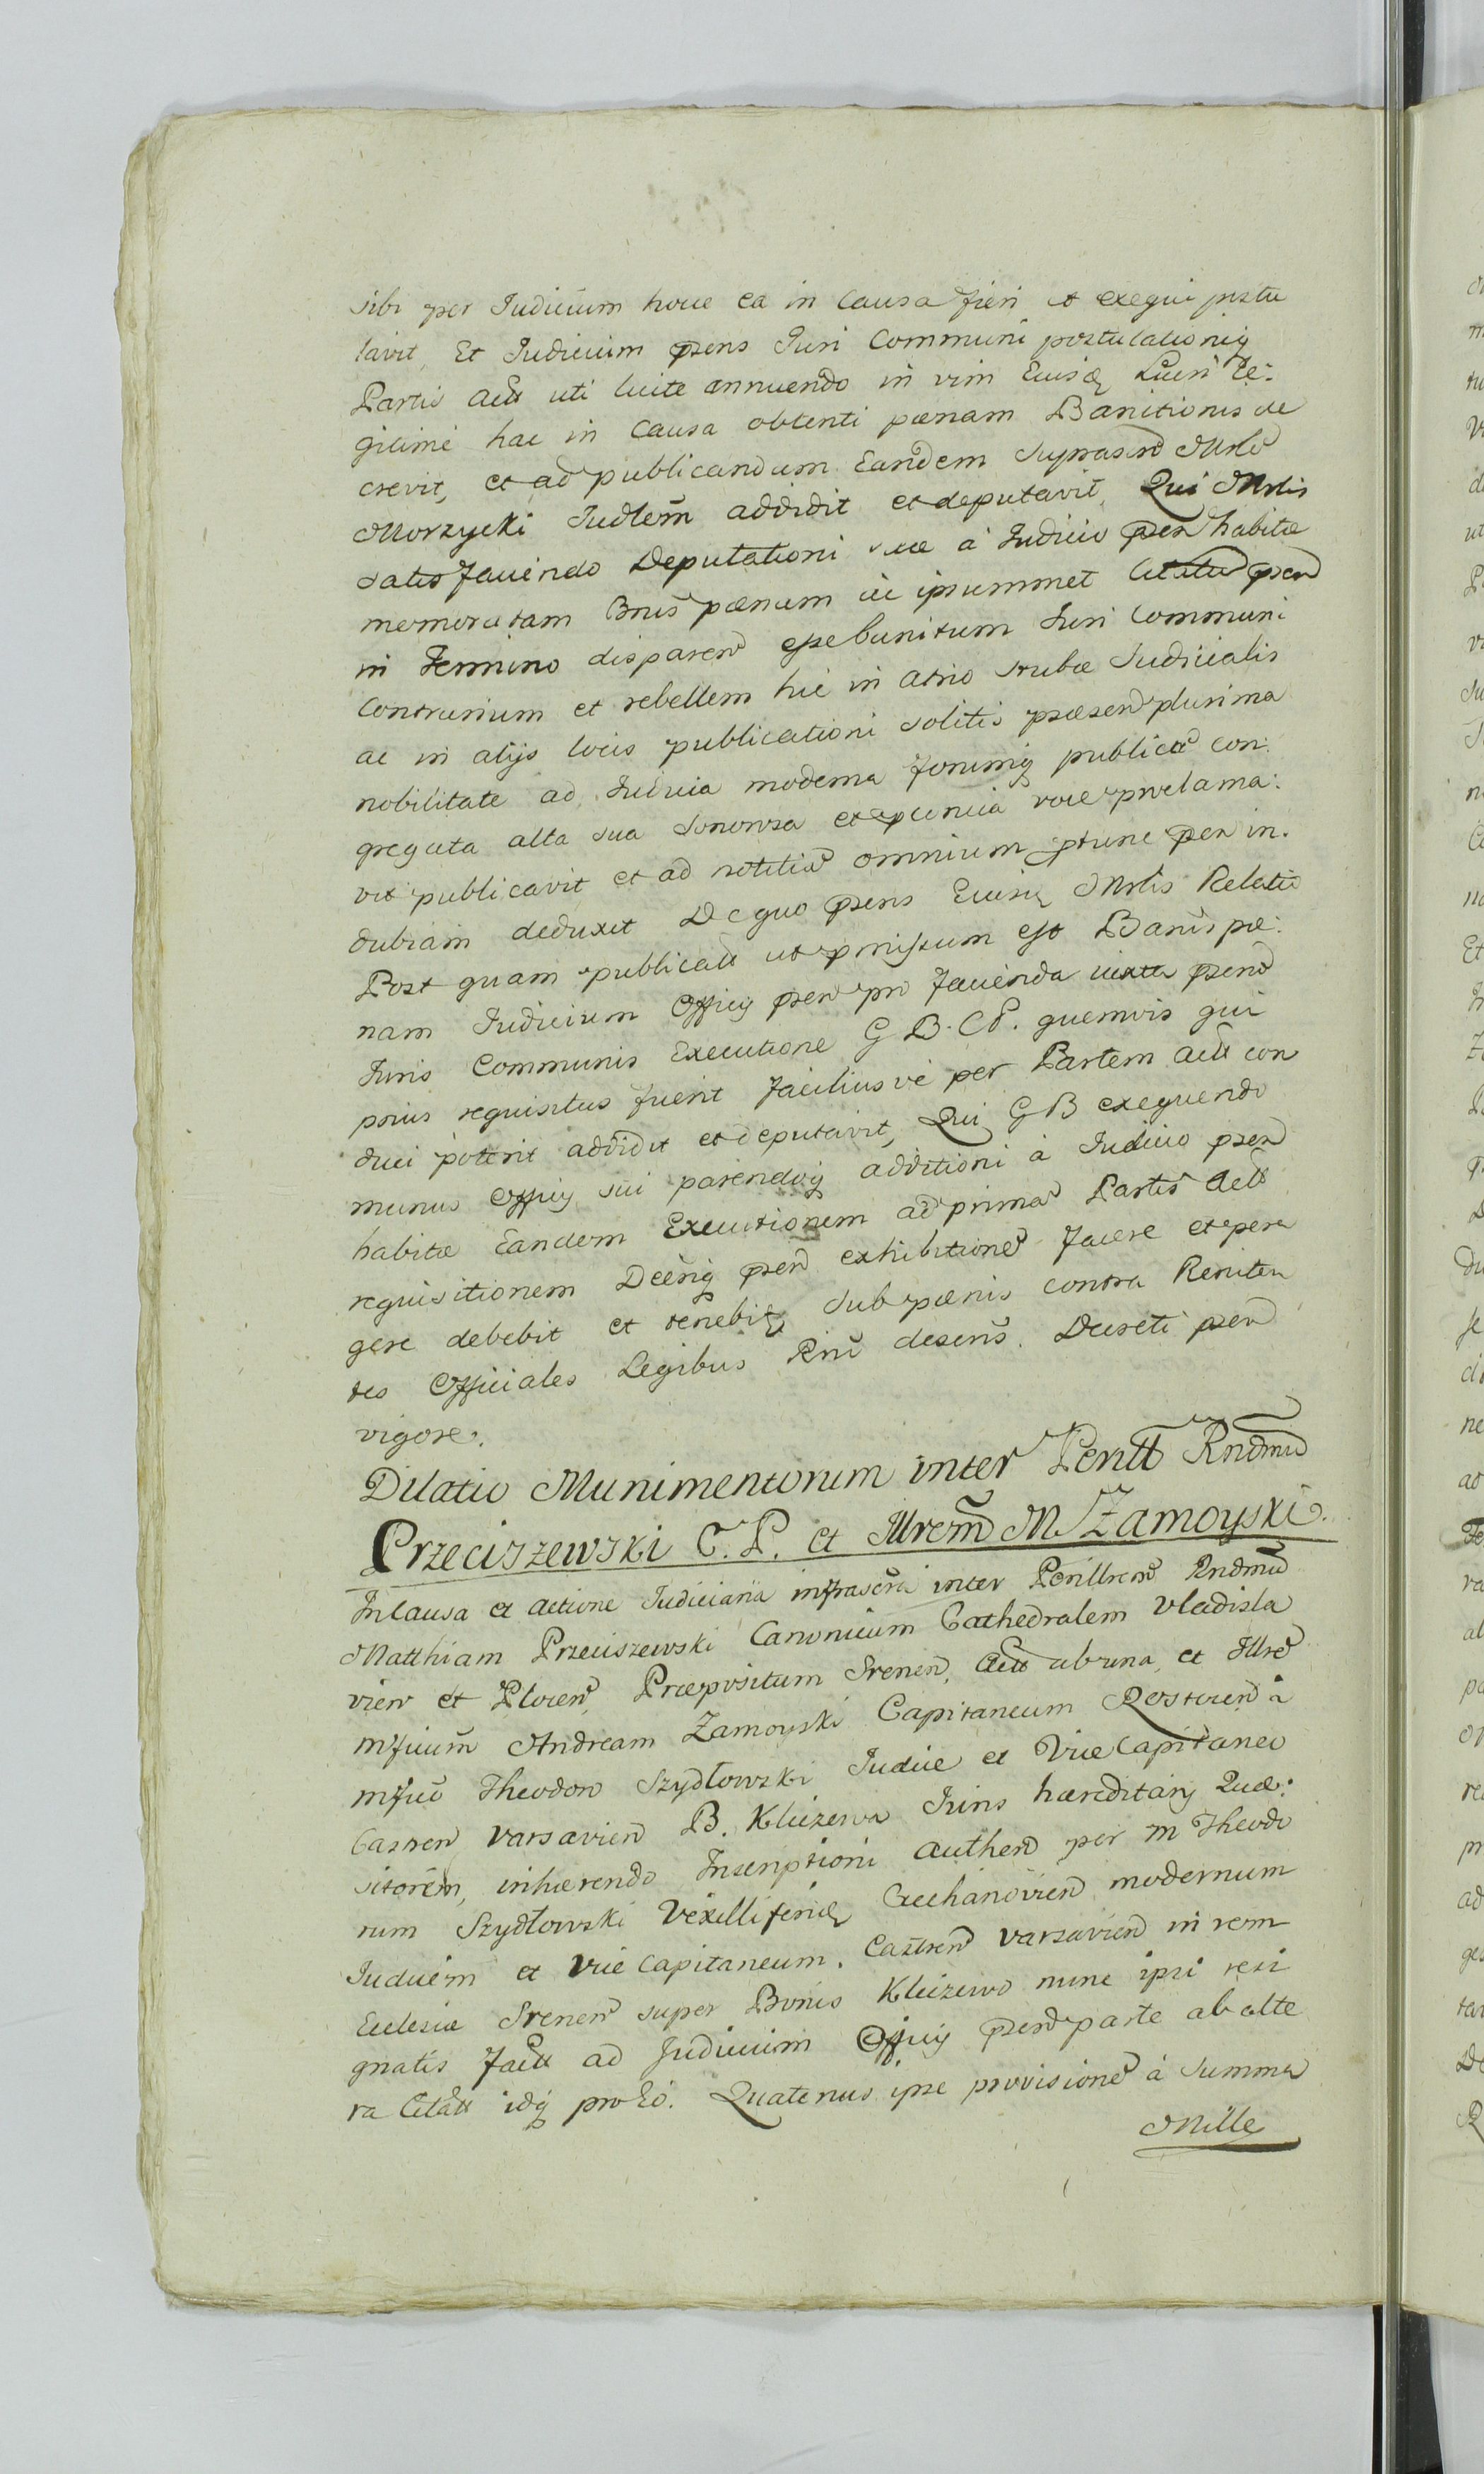 sibi per Judicium hocce ea in Causa fieri et exequi postu
lavit, Et Judicium pſens Juri Communi postulationiq
Partis actt uti licite annuendo in vim Eiusd Lucri le:
gitimé hac in Causa obtenti pœnam Banitionis de
crevit, et ad publicandum Eandem Suprascrō Mrlē
Morzycki Judlem̄ addidit et deputavit, Qui Mrlis
satisfaciendo Deputationi suæ à Judicio pſen habitæ
memoratam Bnis pœnam ac ipsummet Citatū pſen
in Termino disparen eſse banitum Juri Communi
Contrarium et rebellem hic in atrio stubæ Judicialis
ac in alijs locis publicationi solitis præsen plurima
nobilitate ad Judicia moderna forumq publicē con:
gregata alta sua sonorosa et voce proclama:
vit publicavit et ad notitiā omnium ptunc pſen in:
dubiam deduxit De quo pſens Eiusd Mrlis Relatio
Post quam publicatt ut pmiſsum eſt Banis pœ:
nam Judicium Officij pſen pro facienda iuxta pſens
Juris Communis Executione G B. CP. quemvis qui
prius requisitus fuerit faciliusvé per Partem actt con
duci poterit addidit et deputavit, Qui GB exequendo
munus Officij sui parendoq additioni à Judicio pſen
habitæ Eandem Executionem ad primā Partis Actt
requisitionem Dcēriq pſen exhibitionē facere et pera
gere debebit et tenebit, sub pœnis contra Reniten
tes Officiales Legibus Rni descris. Decreti pſen
vigore.
Dilatio Munimentorum inter Perill Rndmū
Przeciszewski C. P. et Illrem̄ M Zamoyski.
In Causa et actione Judiciaria infrascra inter Perillrem Rndmū
Matthiam Przeciszewski Canonicum Cathedralem Vladisla
vien et Plocen, Præpositum Srenen, Actt ab una, et Illrē
mficum̄ Andream Zamoyski Capitaneum Rostocen à
mfico Theodoro Szydłowski Judice et Vice Capitaneo
Castren Varsavien B. Kliczewa Juris hæreditarij Quæ:
sitorem, inhærendo Inscriptioni authen per m Theodo
rum Szydłowski Vexilliferid Czechanovien modernum
Judicem et Vice Capitaneum. Castren Varsavien in rem
Eccleſiæ Srenen super Bonis Kliczewo nunc ipsi resi
gnatis factt ad Judicium Officij pſen parte ab alte
ra Citatt idq pro Eō. Quatenus ipse provisionē à Summa
Mille